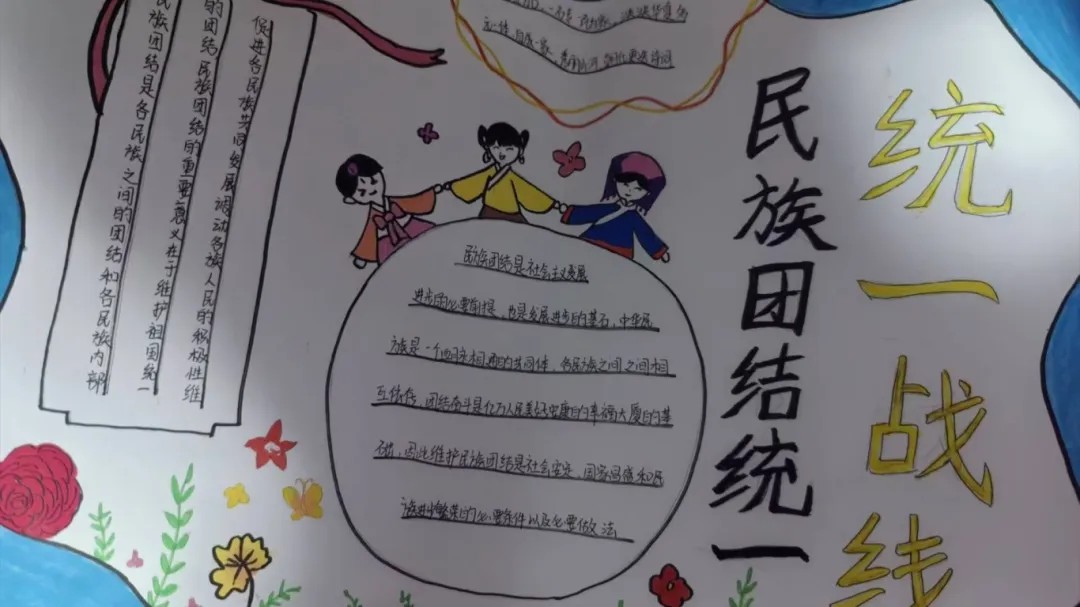 统一战线
民族团结统一
民族团结是各民族之间的团结和各民族内部
的团结 民族团结的重要意义在于维护祖国统一
促进各民族共同发展调动各族人民的积极性维
民族团结是社会主义发展
进步的必要前提，也是发展进步的基石，中华民
族是一个血脉相通的共同体，各民族之间之间相
互依存，团结奋斗是亿万人民美好安康的幸福大厦的基
础，因此维护民族团结是社会安定，国家昌盛和民
族进步繁荣的必要条件以及必要做法